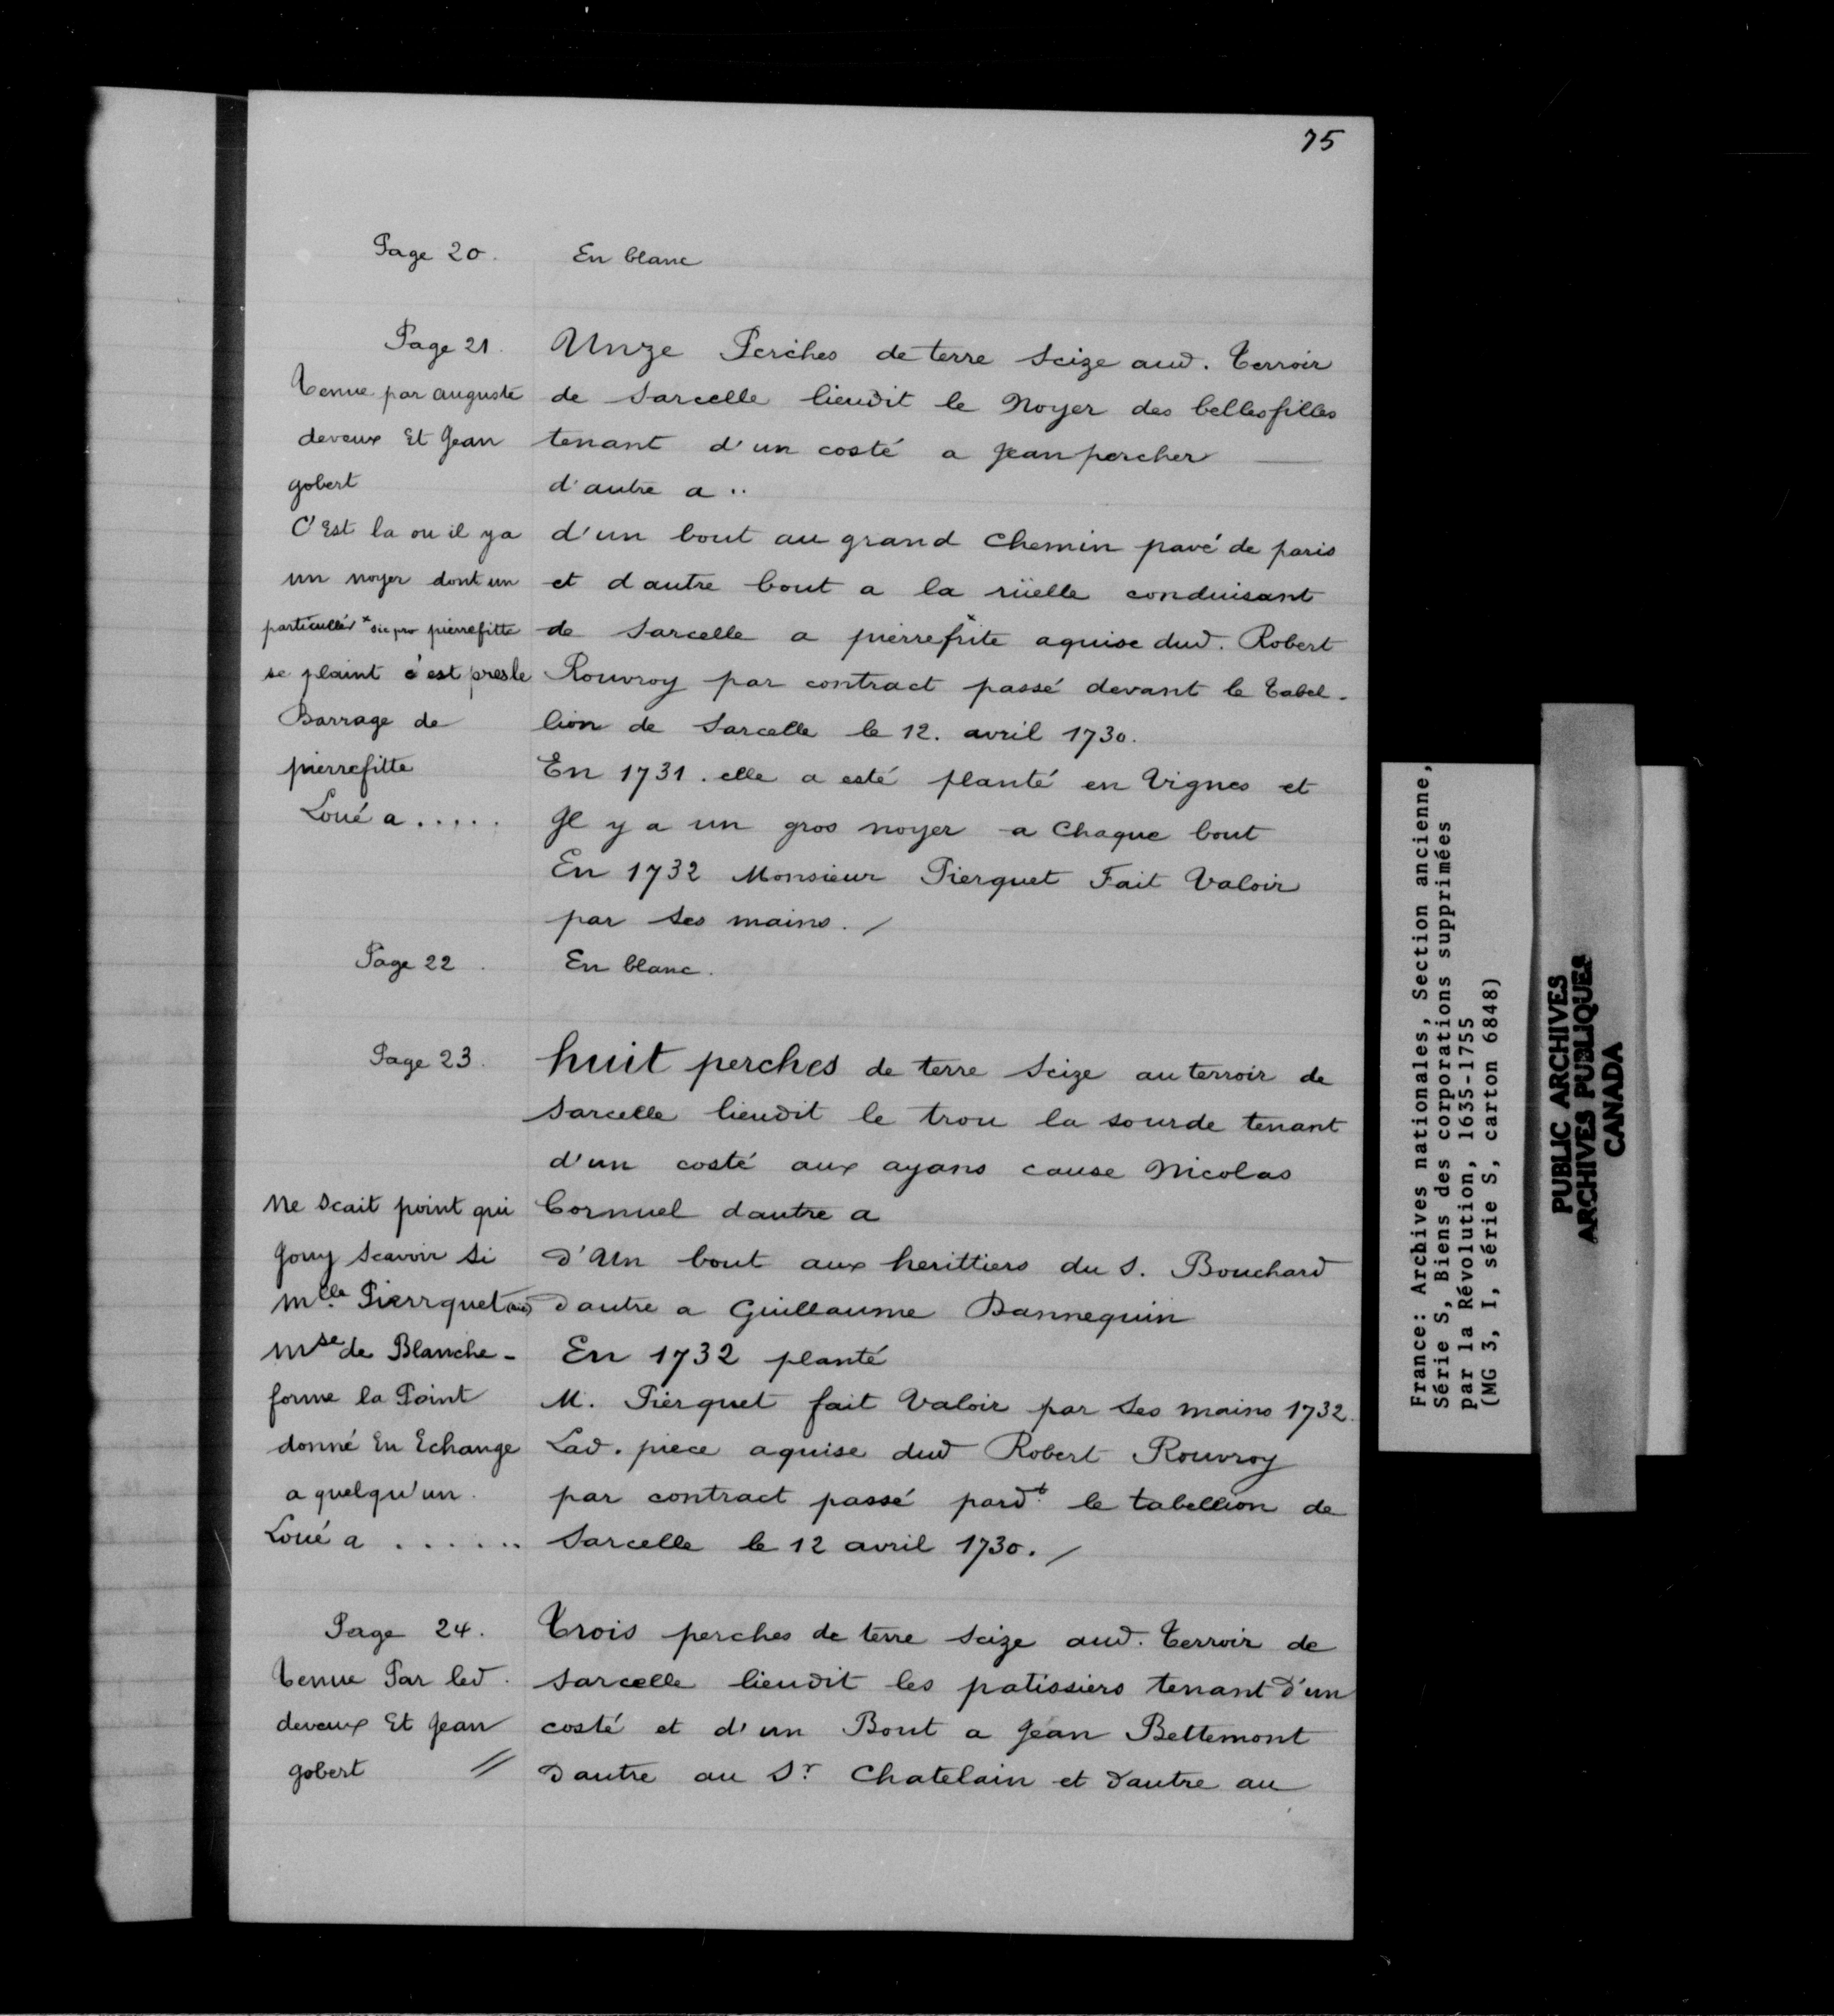 75
Page 20.
En blanc
Page 21.
Tenue par auguste
deveux Et Jean
gobert
C'Est la ou il y a
un noyer dont un
particullier * sic pro pierrefitte
se plaint c'est presle
Barrage de
pierrefitte
Loué a .....
Unze Perches de terre Seize aud. Terroir
de Sarcelle lieudit le Noyer des bellesfilles
tenant d'un costé a Jean percher —
d'autre a ..
d'un bout au grand Chemin pavé de paris
et dautre bout a la rüelle conduisant
de Sarcelle a pierrefrite* aquise dud. Robert
Rouvroy par contract passé devant le Tabel-
lion de Sarcelle le 12. avril 1730.
En 1731. elle a esté planté en Vignes et
Il y a un gros noyer a Chaque bout
En 1732 Monsieur Pierquet Fait Valoir
par Ses mains. /
Page 22.
En blanc.
Page 23.
Ne Scait point qui
Jouy Scavoir Si
Mlle Pierrquet (sic)
Mse de Blanche-
forme la Point
donné En Echange
a quelqu'un.
Loué a ......
huit perches de terre Seize au terroir de
Sarcelle lieudit le trou la sourde tenant
d'un costé aux ayans cause Nicolas
Cornuel dautre a
D'Un bout aux herittiers du S. Bouchard
Dautre a Guillaume Bannequin
En 1732 planté
M. Pierquet fait Valoir par Ses mains 1732.
Lad. piece aquise dud Robert Rouvroy
par contract passé pardt le tabellion de
Sarcelle le 12 avril 1730. /
Page 24.
Tenue Par led.
deveux Et Jean
gobert //
Trois perches de terre Seize aud. Terroir de
Sarcelle lieudit les patissiers tenant D'un
costé et d'un Bout a Jean Bettemont
Dautre au Sr Chatelain et Dautre au
France: Archives nationales, Section ancienne,
Série S, Biens des corporations supprimées
par la Révolution, 1635-1755
(MG 3, I, série S, carton 6848)
PUBLIC ARCHIVES
ARCHIVES PUBLIQUES
CANADA